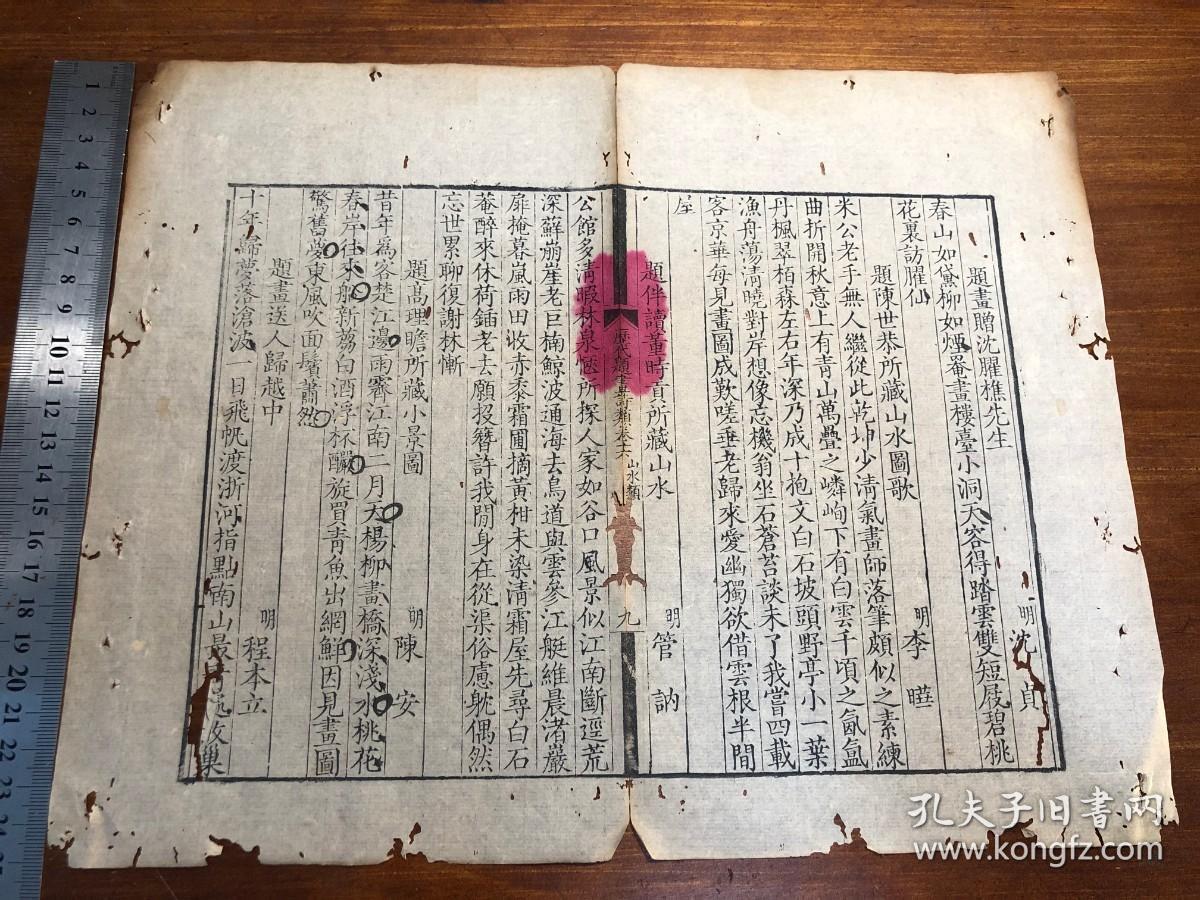 題畫贈沈臞樵先生
明 沈 貞
春山如黛柳如煙罨畫樓臺小洞天容得踏雲雙短屐碧桃
花裏訪臞仙
題陳世恭所藏山水圖歌
明 李 曄
米公老手無人繼從此乾坤少清氣畫師落筆頗似之素練
曲折開秋意上有青山萬疊之嶙峋下有白雲千頃之氤氳
丹楓翠栢森左右年深乃成十抱文白石坡頭野亭小一葉
漁舟蕩清曉對岸想像忘機翁坐石蒼苔談未了我嘗四載
客京華每見畫圖成歎嗟垂老歸來愛幽獨欲借雲根半間
屋
題伴讀董時貢所藏山水
明 管 訥
歷代題畫詩類卷十六 山水類
九
公館多清暇林泉愜所探人家如谷口風景似江南斷逕荒
深蘚崩崖老巨楠鯨波通海去鳥道與雲參江艇維晨渚巖
扉掩暮嵐雨田收赤黍霜圃摘黃柑未染清霜屋先尋白石
菴醉來休荷鍤老去願投簪許我閒身在從渠俗慮躭偶然
忘世累聊復謝林慚
題高理瞻所藏小景圖
明 陳 安
昔年爲客楚江邊雨霽江南二月天楊柳畫橋深淺水桃花
春岸往來船新篘白酒浮杯釅旋買青魚出網鮮因見畫圖
驚舊夢東風吹面鬢蕭然
題畫送人歸越中
明 程本立
十年歸夢落滄波一日飛帆渡浙河指點南山最青處故巢
孔夫子旧书网
www.kongfz.com
1
2
3
4
5
6
7
8
9
10
11
12
13
14
15
16
17
18
19
20
21
22
23
24